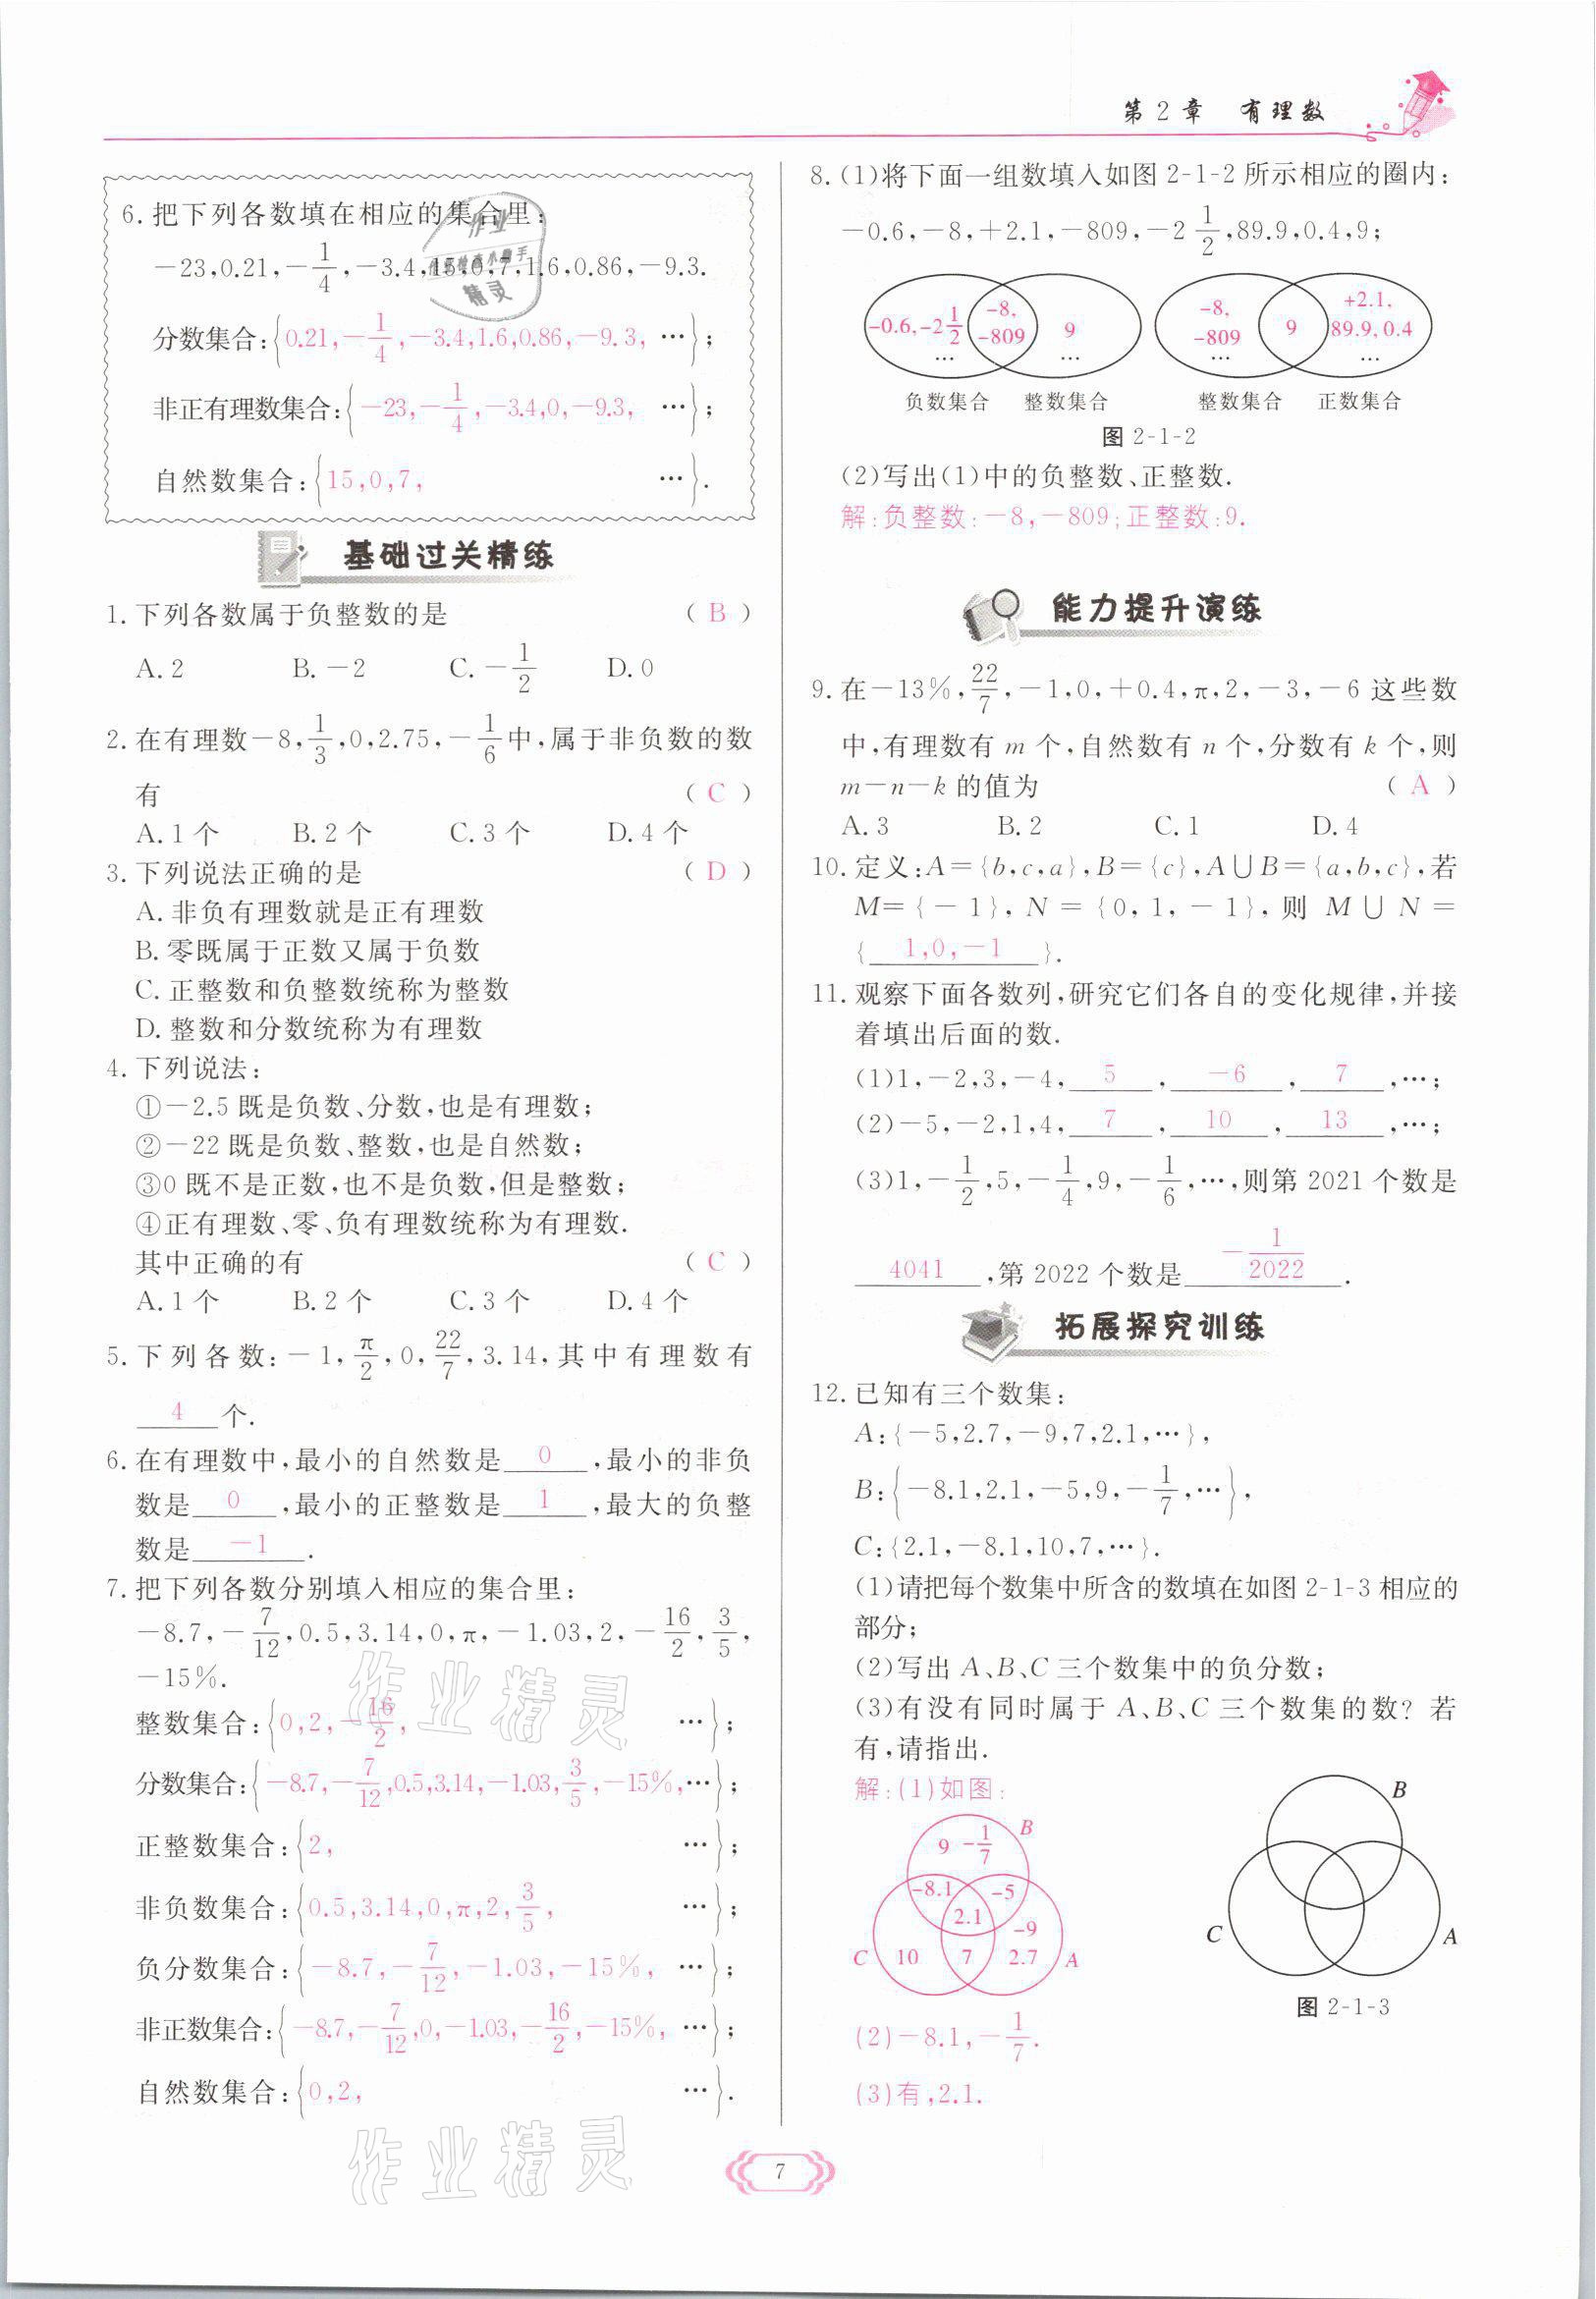 第2章 有理数
6. 把下列各数填在相应的集合里:
-23,0.21,-1/4,-3.4,15,0,7,1.6,0.86,-9.3.
分数集合:{0.21,-1/4,-3.4,1.6,0.86,-9.3, …};
非正有理数集合:{-23,-1/4,-3.4,0,-9.3, …};
自然数集合:{15,0,7, …}.
基础过关精练
1. 下列各数属于负整数的是 ( B )
A. 2 B. -2 C. -1/2 D. 0
2. 在有理数-8,1/3,0,2.75,-1/6中,属于非负数的数
有 ( C )
A. 1个 B. 2个 C. 3个 D. 4个
3. 下列说法正确的是 ( D )
A. 非负有理数就是正有理数
B. 零既属于正数又属于负数
C. 正整数和负整数统称为整数
D. 整数和分数统称为有理数
4. 下列说法:
①-2.5既是负数、分数,也是有理数;
②-22既是负数、整数,也是自然数;
③0既不是正数,也不是负数,但是整数;
④正有理数、零、负有理数统称为有理数.
其中正确的有 ( C )
A. 1个 B. 2个 C. 3个 D. 4个
5. 下列各数:-1,π/2,0,22/7,3.14,其中有理数有
4 个.
6. 在有理数中,最小的自然数是 0 ,最小的非负
数是 0 ,最小的正整数是 1 ,最大的负整
数是 -1 .
7. 把下列各数分别填入相应的集合里:
-8.7,-7/12,0.5,3.14,0,π,-1.03,2,-16/2,3/5,
-15%.
整数集合:{0,2,-16/2, …};
分数集合:{-8.7,-7/12,0.5,3.14,-1.03,3/5,-15%,…};
正整数集合:{2, …};
非负数集合:{0.5,3.14,0,π,2,3/5, …};
负分数集合:{-8.7,-7/12,-1.03,-15%, …};
非正数集合:{-8.7,-7/12,0,-1.03,-16/2,-15%, …};
自然数集合:{0,2, …}.
8. (1)将下面一组数填入如图2-1-2所示相应的圈内:
-0.6,-8,+2.1,-809,-2 1/2,89.9,0.4,9;
-0.6,-2 1/2 … -8,-809 9 … -8,-809 … 9 +2.1,89.9,0.4 …
负数集合 整数集合 整数集合 正数集合
图 2-1-2
(2)写出(1)中的负整数、正整数.
解:负整数:-8,-809;正整数:9.
能力提升演练
9. 在-13%,22/7,-1,0,+0.4,π,2,-3,-6这些数
中,有理数有m个,自然数有n个,分数有k个,则
m-n-k的值为 ( A )
A. 3 B. 2 C. 1 D. 4
10. 定义:A={b,c,a},B={c},A∪B={a,b,c},若
M={-1},N={0,1,-1},则M∪N=
{ 1,0,-1 }.
11. 观察下面各数列,研究它们各自的变化规律,并接
着填出后面的数.
(1)1,-2,3,-4, 5 , -6 , 7 ,…;
(2)-5,-2,1,4, 7 , 10 , 13 ,…;
(3)1,-1/2,5,-1/4,9,-1/6,…,则第2021个数是
4041 ,第2022个数是 -1/2022 .
拓展探究训练
12. 已知有三个数集:
A:{-5,2.7,-9,7,2.1,…},
B:{-8.1,2.1,-5,9,-1/7,…},
C:{2.1,-8.1,10,7,…}.
(1)请把每个数集中所含的数填在如图2-1-3相应的
部分;
(2)写出A、B、C三个数集中的负分数;
(3)有没有同时属于A、B、C三个数集的数?若
有,请指出.
解:(1)如图:
B
9 -1/7
-8.1 -5
2.1
-9
C 10 7 2.7 A
B
C A
图 2-1-3
(2)-8.1,-1/7.
(3)有,2.1.
作业精灵
作业精灵
7